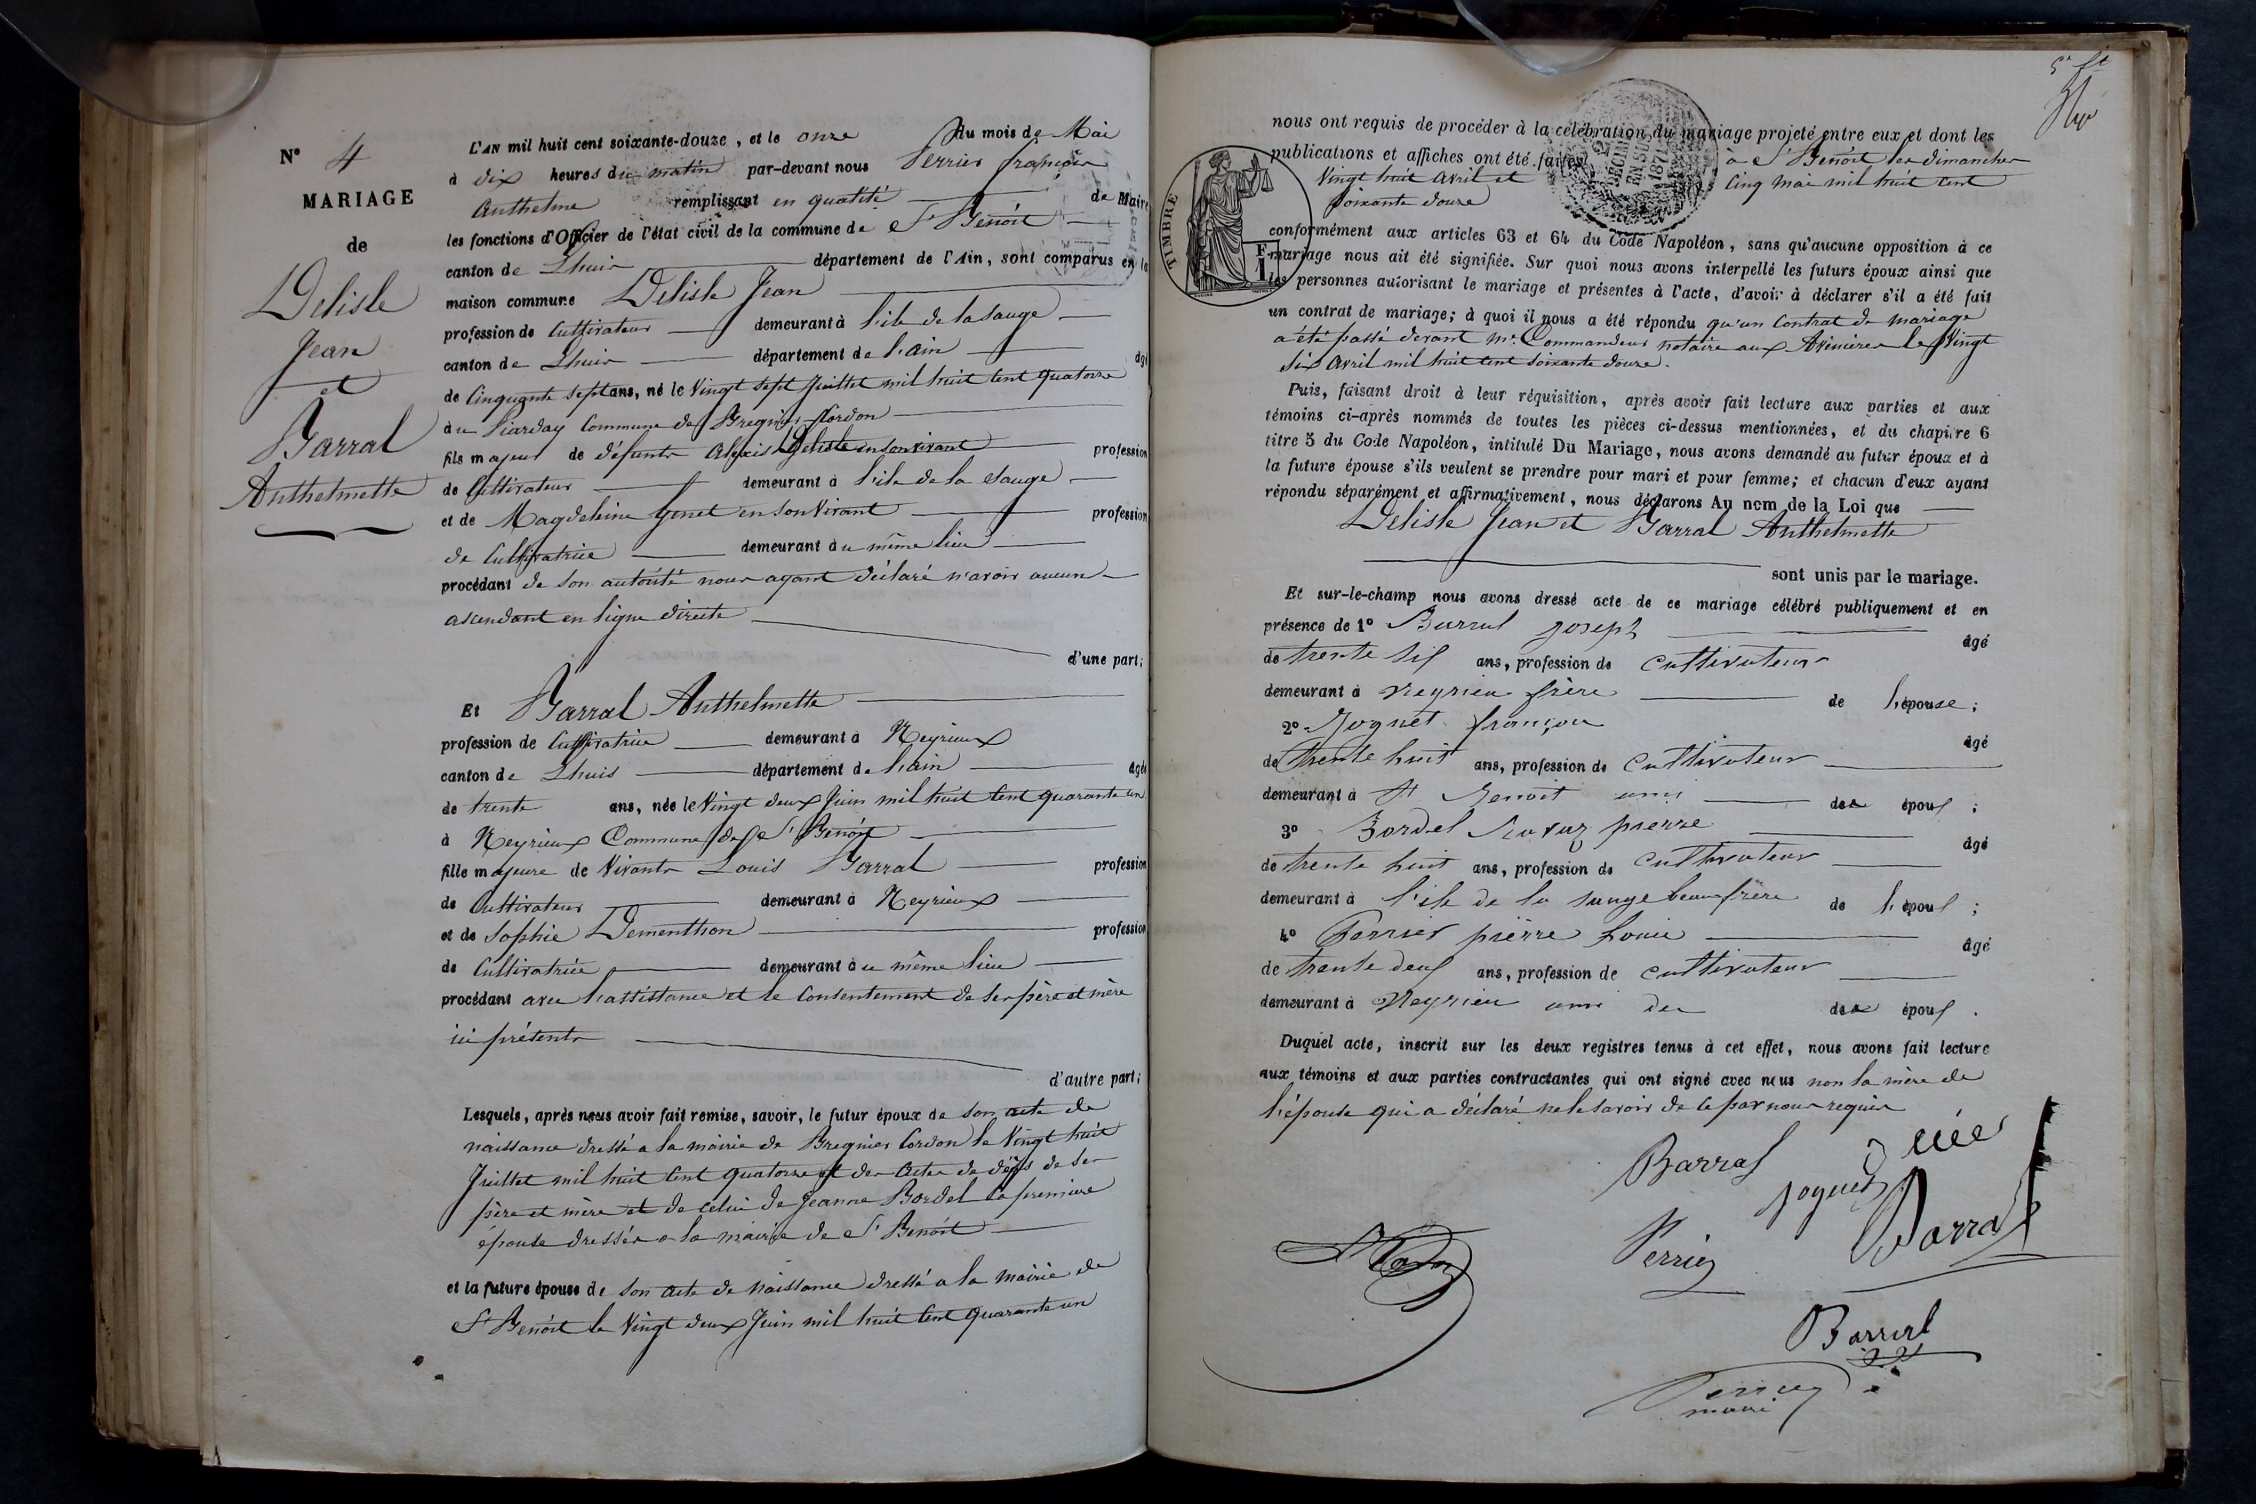 N° 4
MARIAGE
de
Delisle
Jean
et
Barral
Anthelmette
L'AN mil huit cent soixante-douze, et le onze du mois de Mai
à dix heures du matin par-devant nous Perrier françois
Anthelme remplissant en qualité de Maire
les fonctions d'Officier de l'état civil de la commune de St Benoit
canton de Lhuis département de l'Ain, sont comparus en la
maison commune Delisle Jean
profession de Cultivateur demeurant à l'ile de la Sauge
canton de Lhuis département de l'ain âgé
de Cinquante sept ans, né le Vingt sept Juillet mil huit Cent quatorze
à u Liarday Commune de Bregnier Cordon
fils majeur de défunts Alexis Delisle en son vivant profession
de Cultivateur demeurant à l'ile de la Sauge
et de Magdeleine Genet en son Vivant profession
de Cultivatrice demeurant à u même lieu
procédant de son autorité nous ayant déclaré n'avoir aucun
ascendant en ligne directe
d'une part;
Et Barral Anthelmette
profession de Cultivatrice demeurant à Neyrieux
canton de Lhuis département de l'ain âgée
de trente ans, née le Vingt deux Juin mil huit Cent quarante un
à Neyrieux Commune de St Benoit
fille majeure de Vivants Louis Barral profession
de Cultivateur demeurant à Neyrieux
et de Sophie Dementhon profession
de Cultivatrice demeurant à u même lieu
procédant avec l'assistance et le Consentement de ses père et mère
ici présents
d'autre part;
Lesquels, après nous avoir fait remise, savoir, le futur époux de son acte de
naissance dressé a la mairie de Bregnier Cordon le Vingt huit
Juillet mil huit Cent quatorze et des actes de décès de ses
père et mère et de celui de Jeanne Bordel la première
épouse dressés a la mairie de St Benoit
et la future épouse de son acte de naissance dressé a la mairie de
St Benoit le Vingt deux Juin mil huit Cent quarante un
nous ont requis de procéder à la célébration du mariage projeté entre eux et dont les
publications et affiches ont été faites à St Benoit les dimanches
Vingt huit Avril et Cinq Mai mil huit Cent
Soixante douze
TIMBRE
2
DÉCIMES
EN SUS
1871
conformément aux articles 63 et 64 du Code Napoléon, sans qu'aucune opposition à ce
mariage nous ait été signifiée. Sur quoi nous avons interpellé les futurs époux ainsi que
les personnes autorisant le mariage et présentes à l'acte, d'avoir à déclarer s'il a été fait
un contrat de mariage; à quoi il nous a été répondu qu'un Contrat de mariage
a été passé devant Mr Commandeur notaire aux Avenières le Vingt
Six Avril mil huit Cent Soixante douze.
Puis, faisant droit à leur réquisition, après avoir fait lecture aux parties et aux
témoins ci-après nommés de toutes les pièces ci-dessus mentionnées, et du chapitre 6
titre 5 du Code Napoléon, intitulé Du Mariage, nous avons demandé au futur époux et à
la future épouse s'ils veulent se prendre pour mari et pour femme; et chacun d'eux ayant
répondu séparément et affirmativement, nous déclarons Au nom de la Loi que
Delisle Jean et Barral Anthelmette
sont unis par le mariage.
Et sur-le-champ nous avons dressé acte de ce mariage célébré publiquement et en
présence de 1° Barral Joseph âgé
de trente six ans, profession de cultivateur
demeurant à Neyrieu frère de l'épouse;
2° Joguet françois âgé
de trente huit ans, profession de cultivateur
demeurant à St Benoit ami des époux;
3° Bordel pierre âgé
de trente huit ans, profession de cultivateur
demeurant à l'ile de la sauge beaufrère de l'époux;
4° Perrier pierre Louis âgé
de trente deux ans, profession de cultivateur
demeurant à Neyrieu ami des époux.
Duquel acte, inscrit sur les deux registres tenus à cet effet, nous avons fait lecture
aux témoins et aux parties contractantes qui ont signé avec nous non la mère de
l'épouse qui a déclaré ne le savoir de ce par nous requis
Barral
joguet
Perrier
Barral
Barral
Perrier
maire